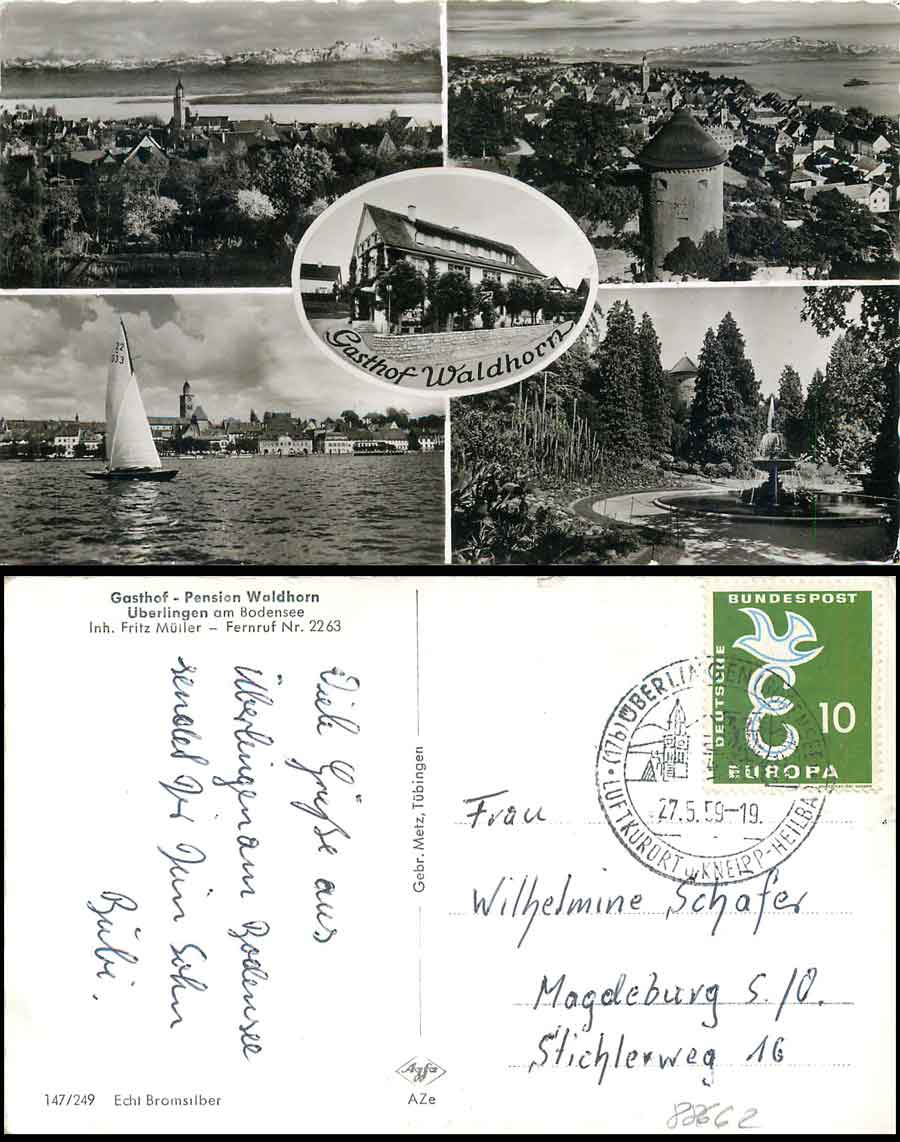 22
Gasthof Waldhorn
Gasthof - Pension Waldhorn
Überlingen am Bodensee
Inh. Fritz Müller – Fernruf Nr. 2263
Viele Grüße aus
Überlingen am Bodensee
sendet Dir Dein Sohn
Bubi.
Gebr. Metz, Tübingen
DEUTSCHE BUNDESPOST
10
EUROPA
(17b) ÜBERLINGEN
27.5.59-19.
LUFTKURORT u. KNEIPP-HEILBA
Frau
Wilhelmine Schäfer
Magdeburg S./O.
Stichlerweg 16
147/249 Echt Bromsilber
Agfa
AZe
88662